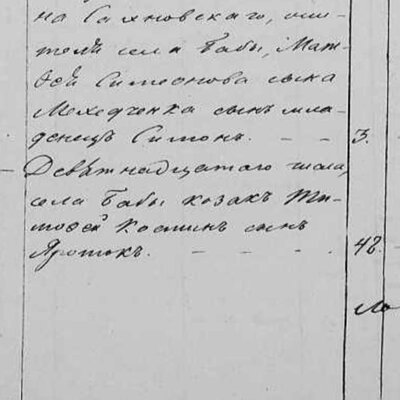 на Сахновскаго, жи-
тель села Бабы, Мат-
ѳей Симеонова сына
Мехедченка сынъ мла-
денецъ Симонъ. - - 3.
Девятнадцатого числа,
села Бабы козакъ Ти-
моѳей Костинъ сынъ
Яротокъ. - - - - 48.